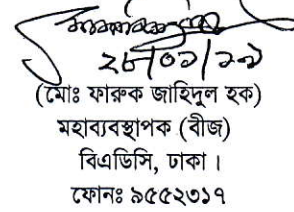 ২৮/০১/২১
(মোঃ ফারুক জাহিদুল হক)
মহাব্যবস্থাপক (বীজ)
বিএডিসি, ঢাকা।
ফোনঃ ৯৫৫২৩১৭